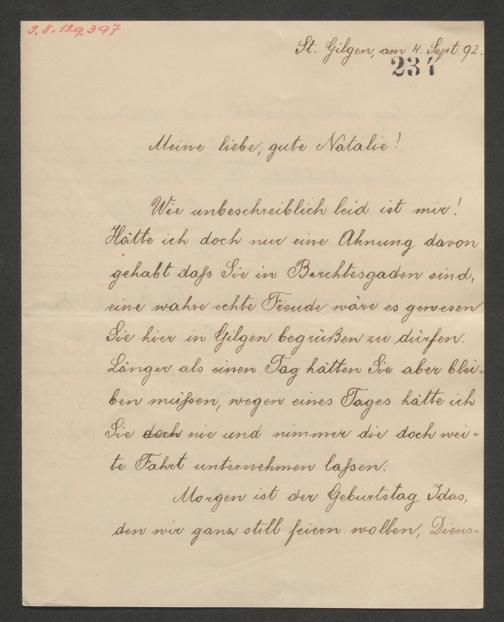 I.N. 129.397
St. Gilgen, am 4. Sept 92.
237
Meine liebe, gute Natalie!
Wie unbeschreiblich leid ist mir!
Hätte ich doch nur eine Ahnung davon
gehabt daß Sie in Berchtesgaden sind,
eine wahre echte Freude wäre es gewesen
Sie hier in Gilgen begrüßen zu dürfen.
Länger als einen Tag hätten Sie aber blei-
ben müßen, wegen eines Tages hätte ich
Sie doch nie und nimmer die doch wei-
te Fahrt unternehmen laßen.
Morgen ist der Geburtstag Idas,
den wir ganz still feiern wollen, Diens-